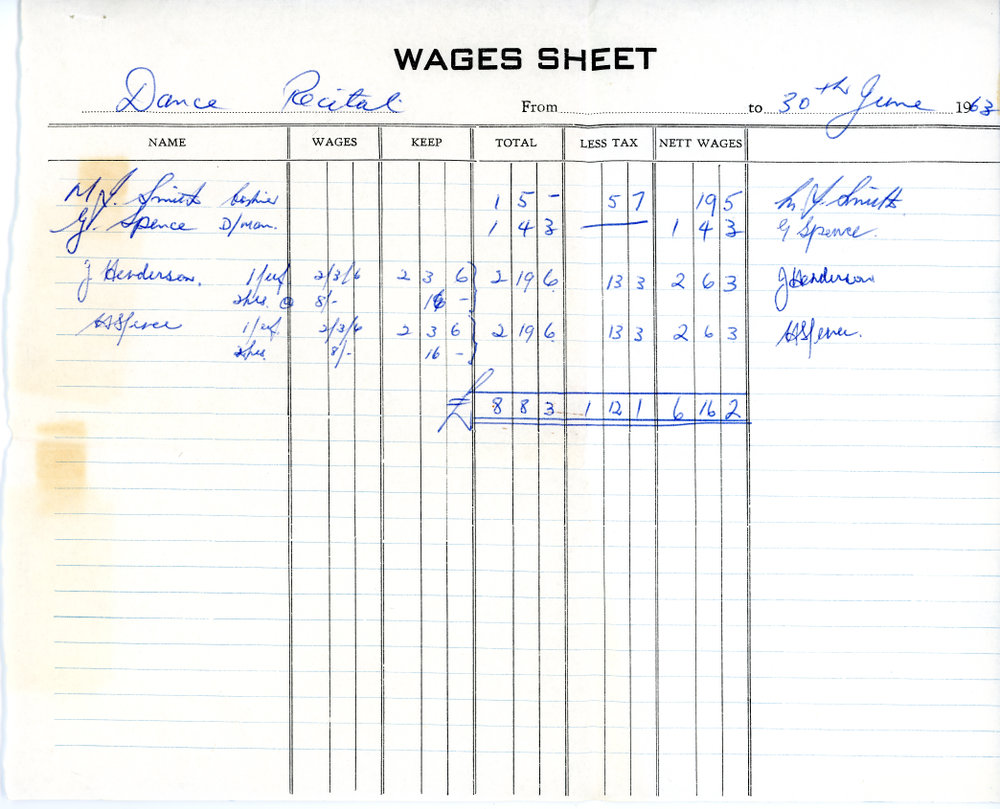 WAGES SHEET
Dance Recital From to 30th June 1963
NAME WAGES KEEP TOTAL LESS TAX NETT WAGES
M Y. Smith Cashier 1 5 - 5 7 19 5 M Y Smith.
G. Spence D/man. 1 4 3 — 1 4 3 G Spence.
J Henderson. 1/perf 2/3/6 2 3 6 2 19 6 13 3 2 6 3 J Henderson
2hrs. @ 8/- 16 -
1/perf 2/3/6 2 3 6 2 19 6 13 3 2 6 3
2hrs. 8/- 16 -
£ 8 8 3 1 12 1 6 16 2